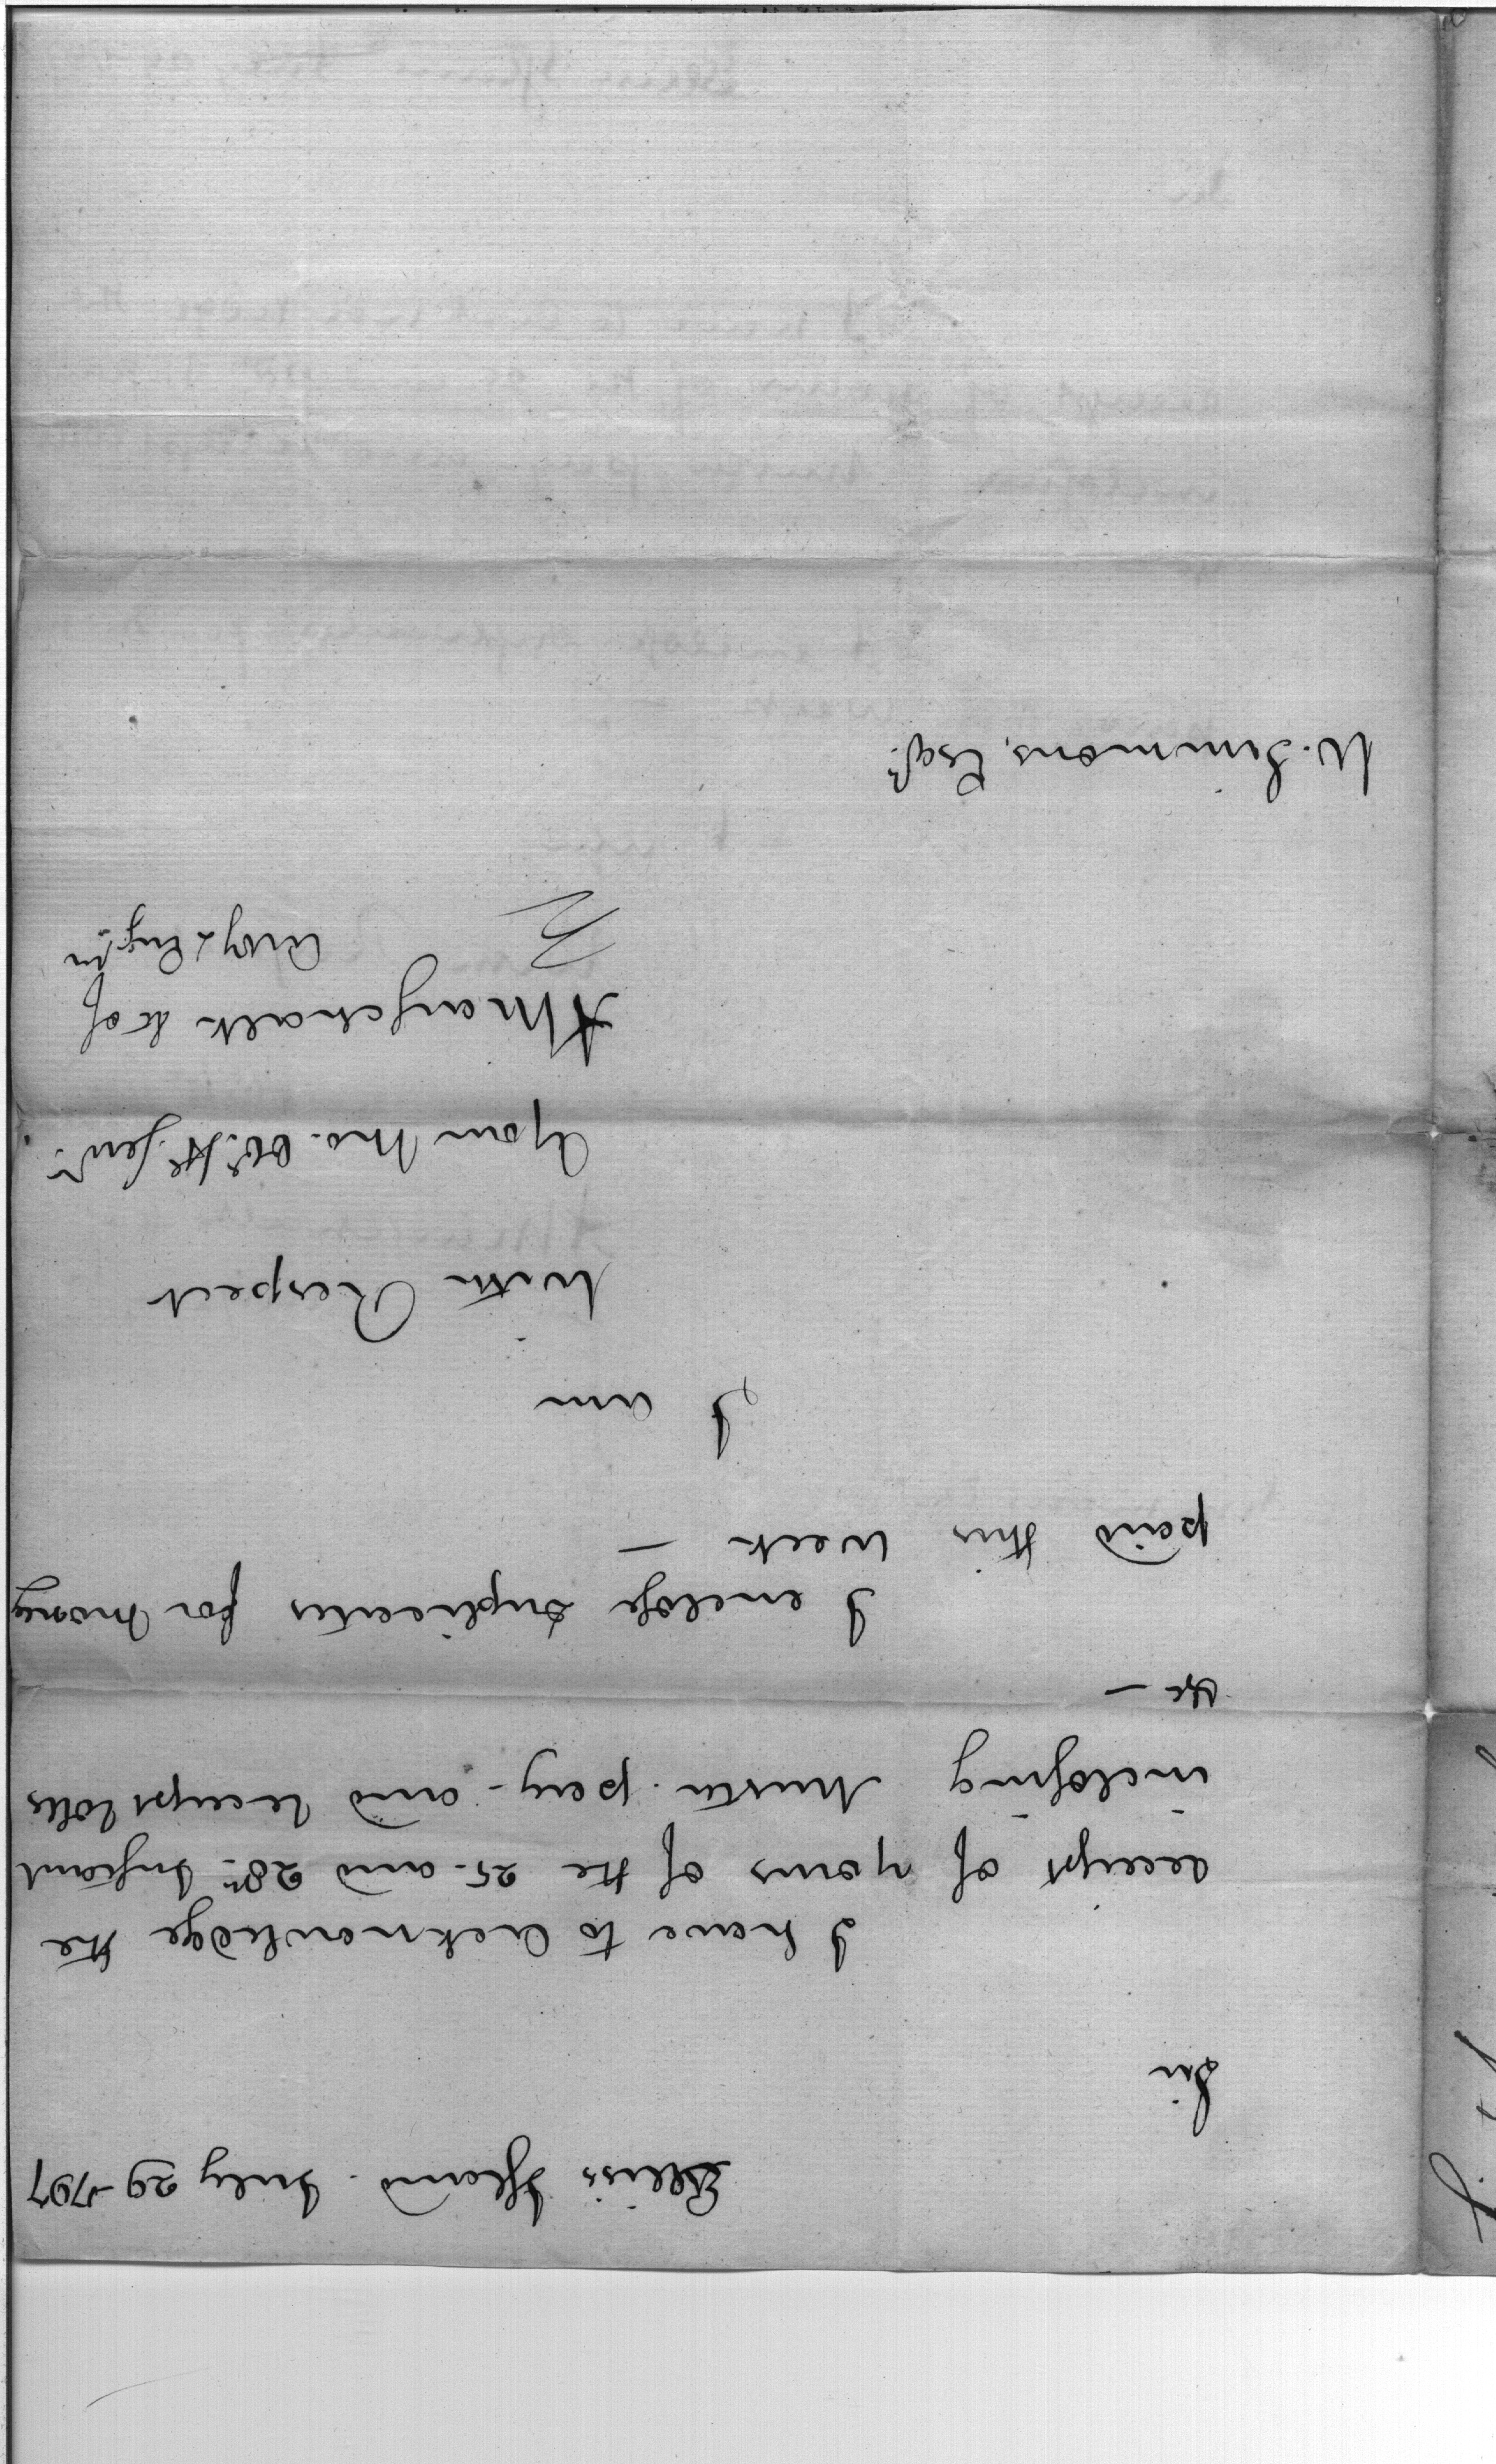 Elliss Island. July 29-1797
Sir
I have to Acknowledge the
receipt of yours of the 25. and 28th. Instant
inclosing Muster. pay- and receipt rolls
&c —
I enclose Duplicates for Money
paid this week —
I am
With Respect
Your Mo. Obt. He. Servt.
Art.y & Eng.rs
W. Simmons, Esqr.